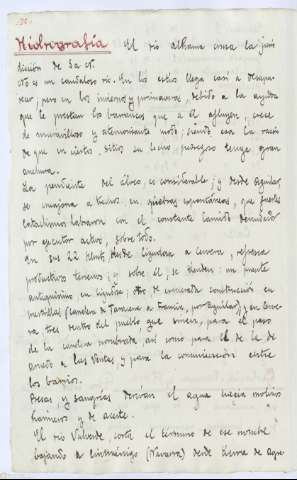 Hidrografía El río Alhama cruza la juris
dicción de S a N.
No es un caudaloso río. En los estíos llega casi a desapa
recer, pero en los inviernos y primaveras, debido a la ayuda
que le prestan los barrancos que a él afluyen, crece
de maravilloso y atemorizante modo, siendo esa la razón
de que en ciertos sitios su lecho pedregoso tenga gran
anchura.
La pendiente del álveo, es considerable; y desde Aguilar
se encajona a trechos en quiebras espontáneas, que fuertes
cataclismos labraron con el constante lamido denudado
por ejecutor activo, sobre todo.
En sus 22 klmts. desde Cigudosa a Cervera, repasa
productivos terrenos; y sobre él se tienden: un puente
antiquísimo en Inestrillas, otro de encerada construcción en
(carretera de Tarazona a Francia, por Aguilar) y en Cerve
ra tres dentro del pueblo que sirven, para el paso
de la carretera nombrada, así como para el de la de
Arnedo a las Ventas, y para la comunicación entre
los barrios.
Presas y sangrías derivan el agua hacia molinos
harineros y de aceite.
El río Valverde, corta el término de ese nombre
bajando a Cintruénigo (Navarra) desde tierra de Agre